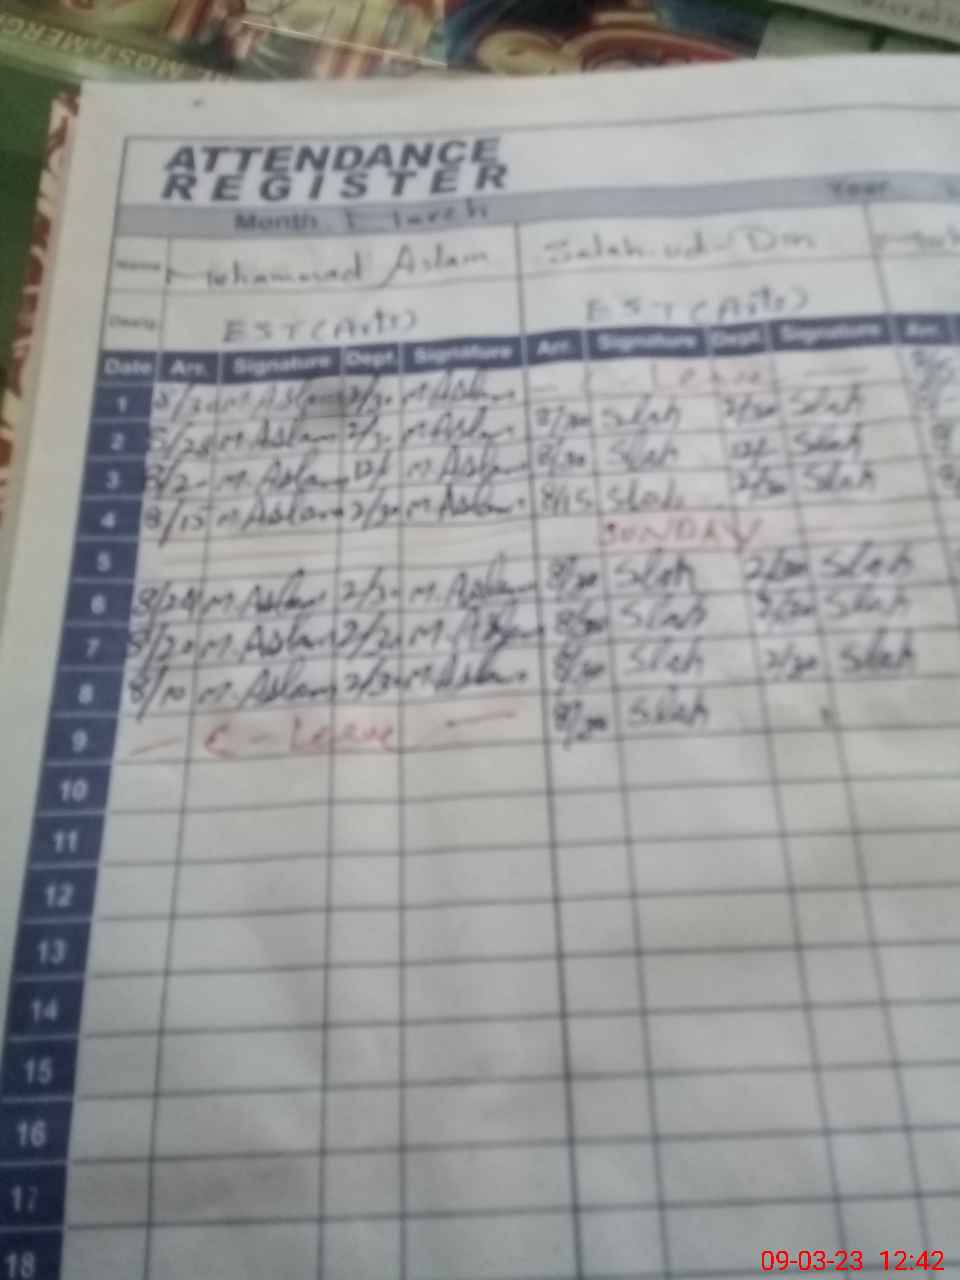 MOST, MERC
ATTENDANCE
REGISTER
Month March Year
Name Mohammad Aslam Salah-ud-Din
Desig. EST (Arts) EST (Arts)
Date Arr. Signature Dept. Signature Arr. Signature Dept. Signature Arr.
1 8/30 M. Aslam 2/30 M. Aslam Leave
2 8/28 M. Aslam M. Aslam 8/30 Slah 2/30 Slah
3 M. Aslam 12/ M. Aslam 8/30 Slah 12/ Slah
4 8/15 M. Aslam 2/30 M. Aslam 8/15 Slah 2/30 Slah
5 SUNDAY
6 M. Aslam 2/30 M. Aslam 8/20 Slah 2/30 Slah
7 8/20 M. Aslam M. Aslam Slah Slah
8 8/10 M. Aslam 2/30 M. Aslam 8/20 Slah 2/30 Slah
9 C - Leave 8/20 Slah
10
11
12
13
14
15
16
17
18
09-03-23 12:42